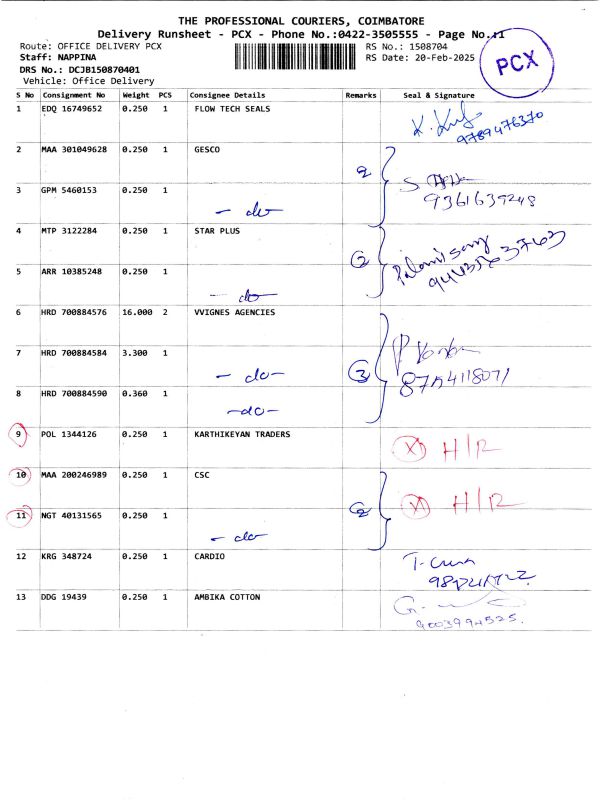 THE PROFESSIONAL COURIERS, COIMBATORE
Delivery Runsheet - PCX - Phone No.:0422-3505555 - Page No.:1
Route: OFFICE DELIVERY PCX
RS No.: 1508704
Staff: NAPPINA
RS Date: 20-Feb-2025
DRS No.: DCJB150870401
Vehicle: Office Delivery
PCX
S No Consignment No Weight PCS Consignee Details Remarks Seal & Signature
1 EDQ 16749652 0.250 1 FLOW TECH SEALS
9789476370
2 MAA 301049628 0.250 1 GESCO
2
3 GPM 5460153 0.250 1
- do
9361639248
4 MTP 3122284 0.250 1 STAR PLUS
2
5 ARR 10385248 0.250 1
- do
6 HRD 700884576 16.000 2 VVIGNES AGENCIES
7 HRD 700884584 3.300 1
- do - 3
8754118071
8 HRD 700884590 0.360 1
- do -
9 POL 1344126 0.250 1 KARTHIKEYAN TRADERS
X H/R
10 MAA 200246989 0.250 1 CSC
X H/R
11 NGT 40131565 0.250 1
2
- do
12 KRG 348724 0.250 1 CARDIO
13 DDG 19439 0.250 1 AMBIKA COTTON
9003994525